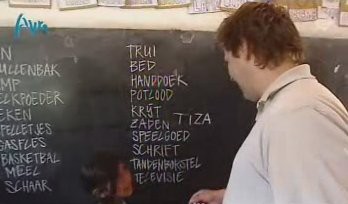 Avro
N
ULLENBAK
MP
ELKPOEDER
EKEN
PELLETJES
GASFLES
BASKETBAL
MEEL
SCHAAR
TRUI
BED
HANDDOEK
POTLOOD
KRYT
ZADEN TIZA
SPEELGOED
SCHRIFT
TANDENBORSTEL
TELEVISIE